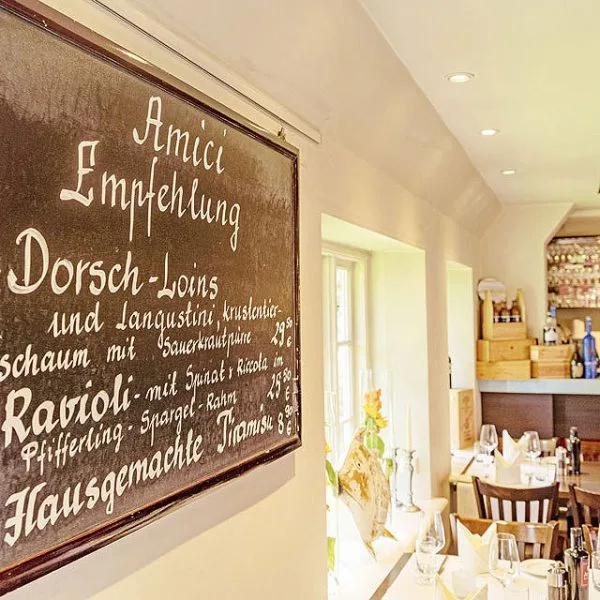 Amici
Empfehlung
Dorsch-Loins
und Langustini, krustentier-
schaum mit Sauerkrautpüree 29 50 €
Ravioli-mit Spinat & Riccola im
Pfifferling-Spargel-Rahm 25 50 €
Hausgemachte Tiramisu 8 90 €